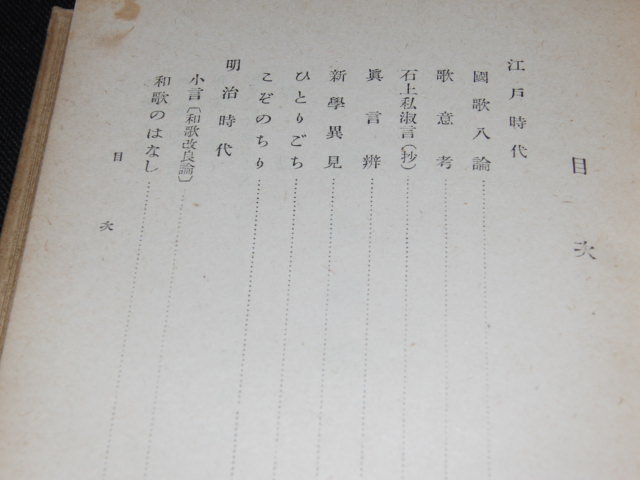 目次
江戸時代
國歌八論
歌意考
石上私淑言(抄)
眞言辨
新學異見
ひとりごち
こぞのちり
明治時代
小言〔和歌改良論〕
和歌のはなし
目次